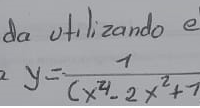 da utilizando e
y = 1/(x⁴ - 2x² + 1